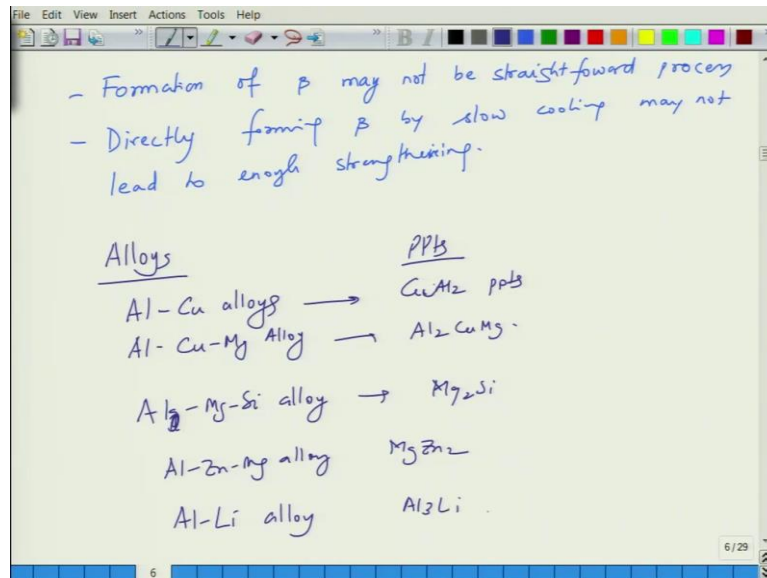 File Edit View Insert Actions Tools Help
B I
- Formation of β may not be straightfoward process
- Directly forming β by slow cooling may not
lead to enogh strengthening.
Alloys PPts
Al-Cu alloys → CuAl2 ppts
Al-Cu-Mg Alloy — Al2CuMg.
Al-Mg-Si alloy → Mg2Si
Al-Zn-Mg alloy MgZn2
Al-Li alloy Al3Li .
6/29
6